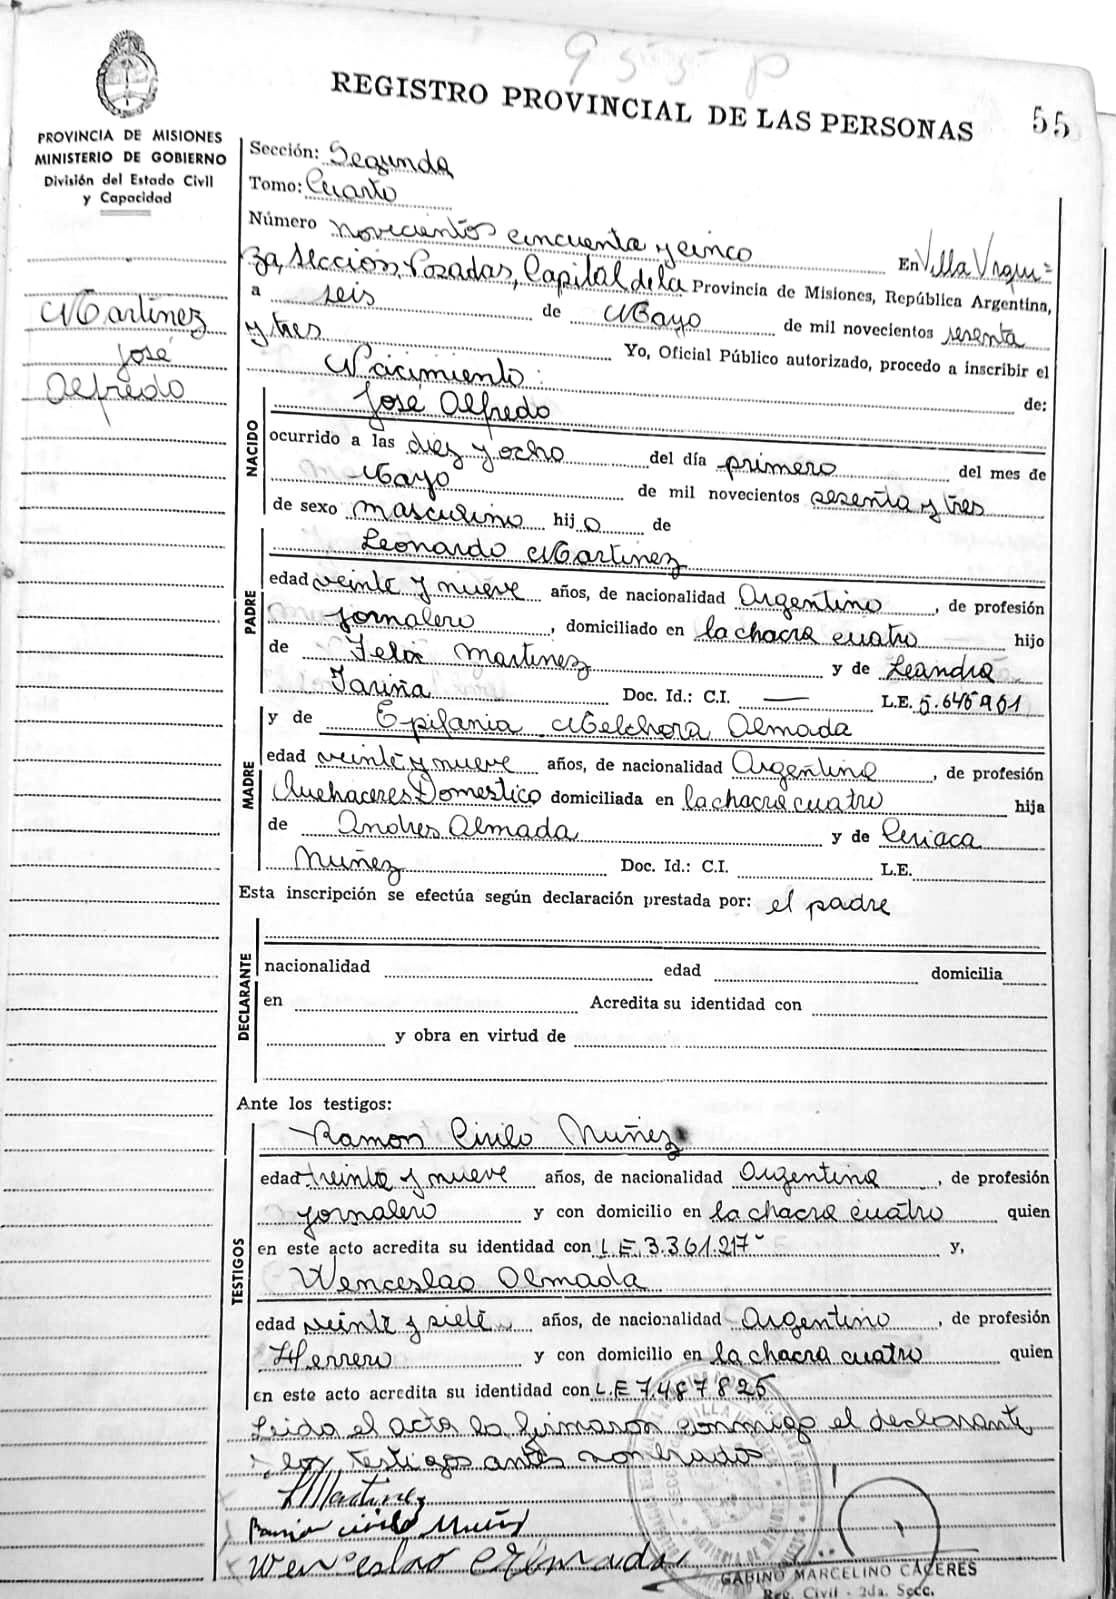 955 P
REGISTRO PROVINCIAL DE LAS PERSONAS
55
PROVINCIA DE MISIONES
MINISTERIO DE GOBIERNO
División del Estado Civil
y Capacidad
Martinez
José
Alfredo
Sección: Segunda
Tomo: Cuarto
Número novecientos cincuenta y cinco En Villa Urqui=
za, Seccion, Posadas, Capital de la Provincia de Misiones, República Argentina,
a seis de Mayo de mil novecientos sesenta
y tres Yo, Oficial Público autorizado, procedo a inscribir el
Nacimiento: de:
NACIDO
José Alfredo
ocurrido a las diez y ocho del día primero del mes de
Mayo de mil novecientos sesenta y tres
de sexo masculino hijo de
PADRE
Leonardo Martinez
edad veinte y nueve años, de nacionalidad Argentino, de profesión
Jornalero, domiciliado en la chacra cuatro hijo
de Felix Martinez y de Leandra
Fariña Doc. Id.: C.I. — L.E. 5.645.961
MADRE
y de Epifania Melchora Almada
edad veinte y nueve años, de nacionalidad Argentina, de profesión
Quehaceres Domestico domiciliada en la chacra cuatro hija
de Andres Almada y de Ciriaca
Nuñez Doc. Id.: C.I. L.E.
Esta inscripción se efectúa según declaración prestada por: el padre
DECLARANTE
nacionalidad edad domicilia
en Acredita su identidad con
y obra en virtud de
Ante los testigos:
TESTIGOS
Ramon Cirilo Nuñez
edad treinta y nueve años, de nacionalidad Argentina, de profesión
Jornalero y con domicilio en la chacra cuatro quien
en este acto acredita su identidad con L.E. 3.361.217 y,
Wenceslao Almada
edad veinte y siete años, de nacionalidad Argentino, de profesión
Herrero y con domicilio en la chacra cuatro quien
en este acto acredita su identidad con L.E 7.487.825
Leida el acta la firmaron conmigo el declarante
y los testigos antes nombrados
L Martinez
Ramon Cirilo Nuñez
Wenceslao Almada
GABINO MARCELINO CACERES
Reg. Civil - 2da. Secc.